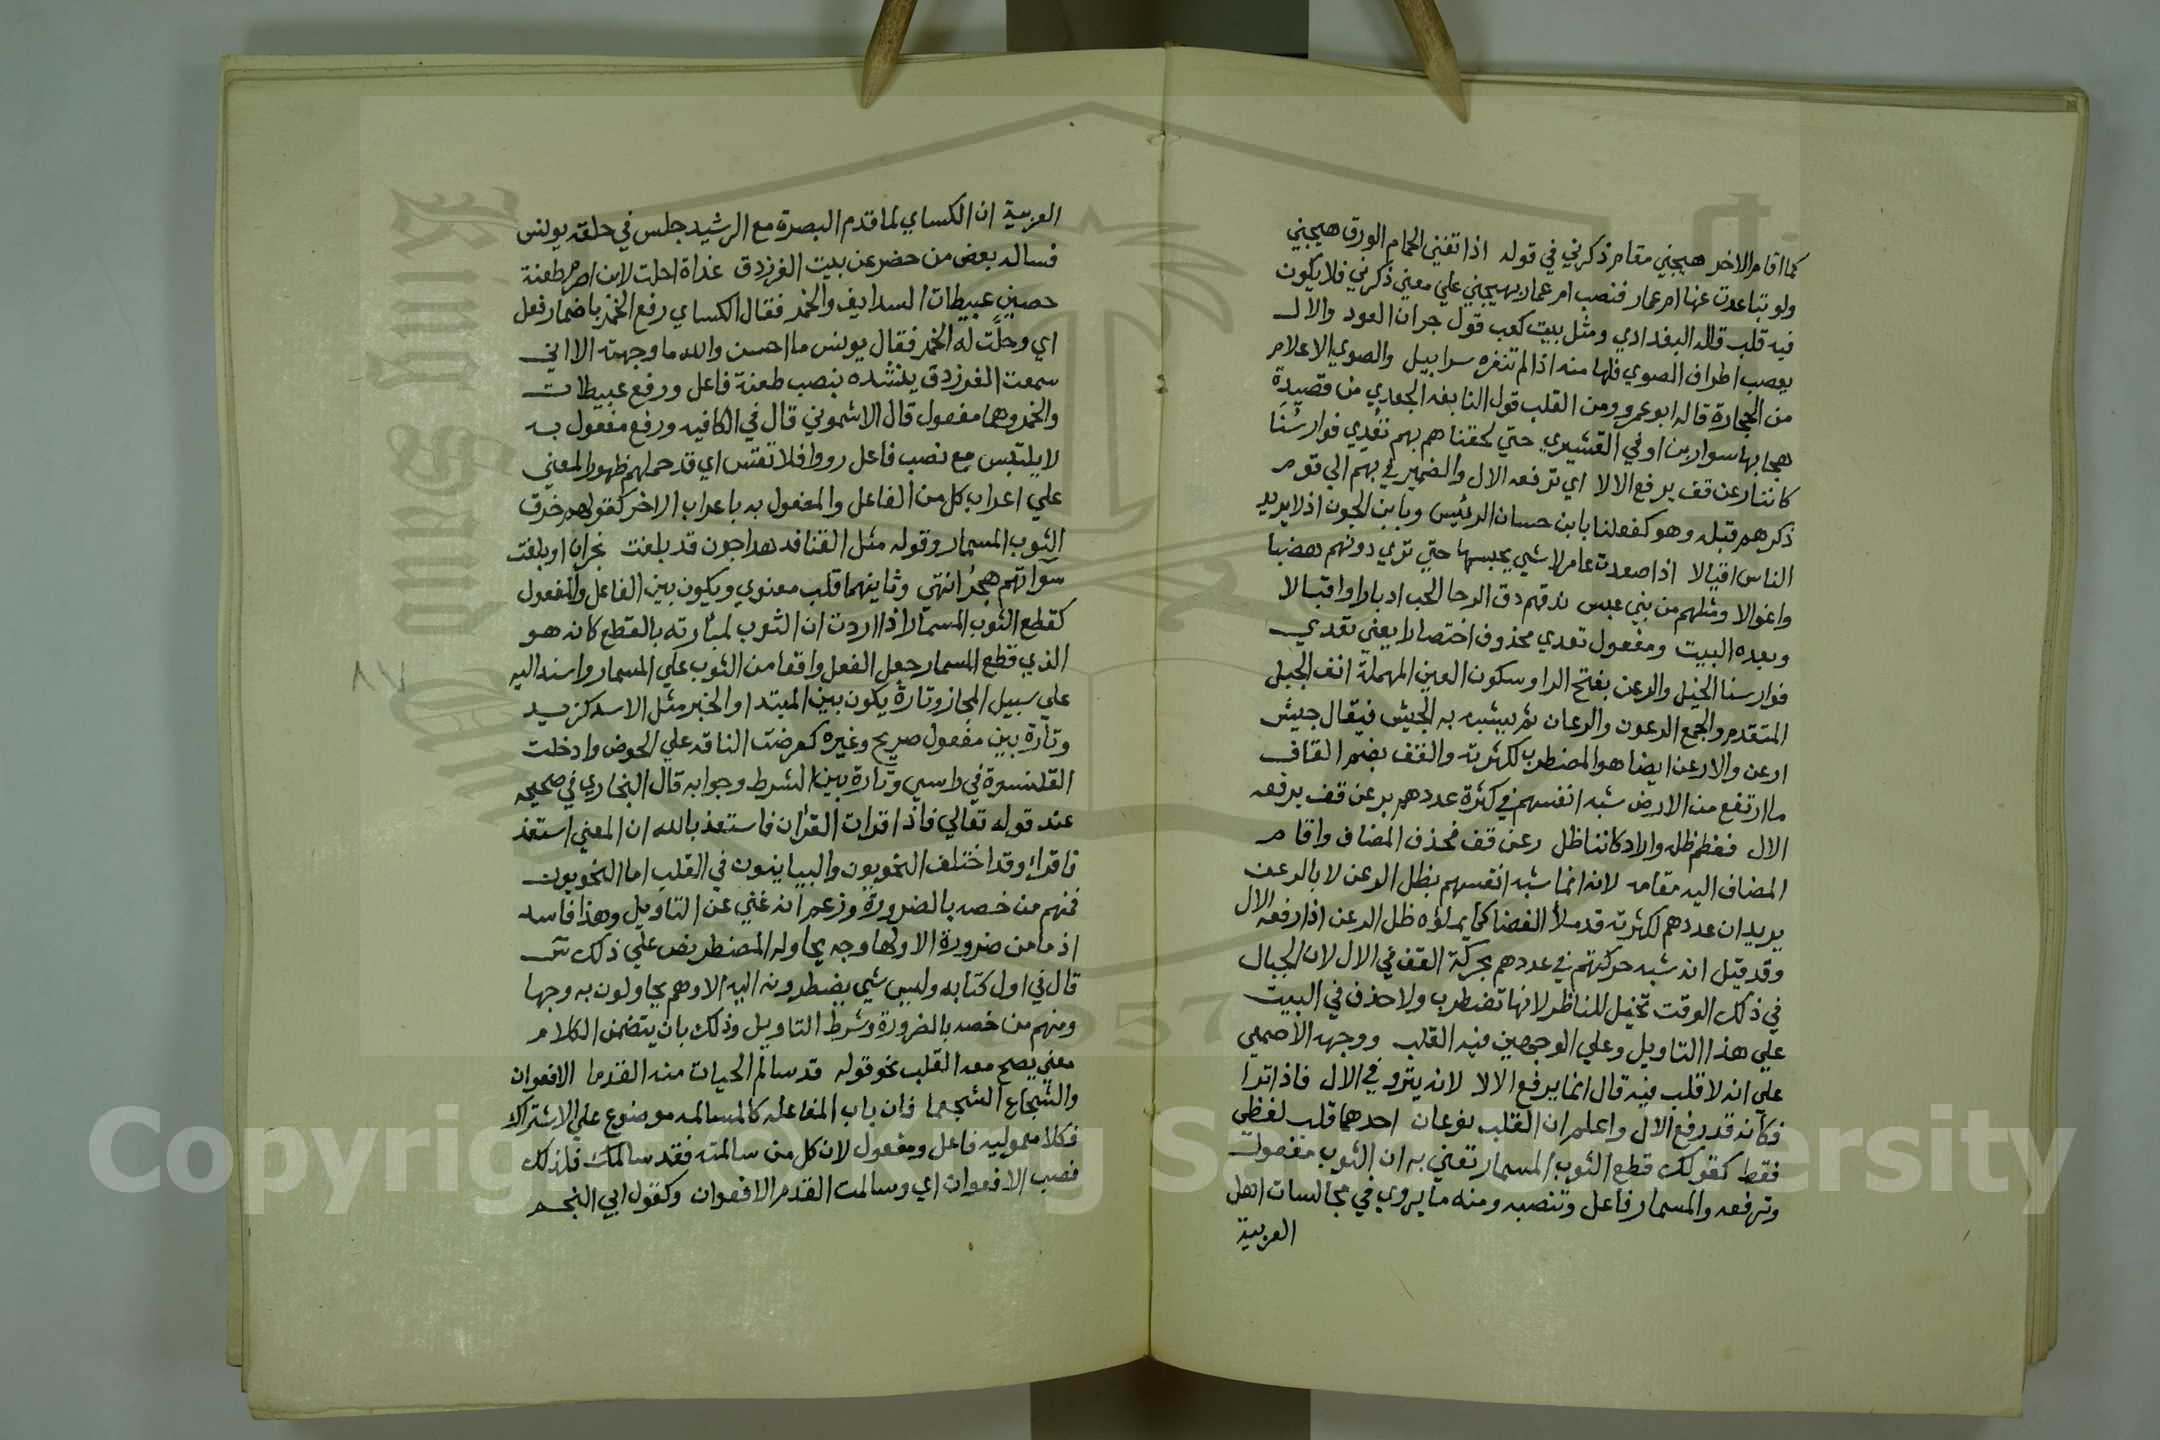 كما اقام الاخر هيجني مقام ذكرني في قوله اذا تغني الحمام الورق هيجني
ولو تباعدت عنها ام عمار فنصب ام عمار بهيجني علي معني ذكرني فلا يكون
فيه قلب قاله البغدادي ومثل بيت كعب قول جران العود والال
يعصب اطراف الصوي فلها منه اذا لم تنفره سرابيل والصوي الاعلام
من الحجارة قاله ابو عمرو ومن القلب قول النابغه الجعدي من قصيدة
هجا بها سوار بن اوفي القشيري حتي لحقناهم بهم تعدي فوارسنا
كاننا رعن قف يرفع الالا اي ترفعه الال والضمير في بهم الي قوم
ذكرهم قبله وهو كفعلنا بابن حسان الرئيس وبابن الجون اذ لا يريد
الناس اقبالا اذا صعدت عامر لا شي يحبسها حتي تري دونهم هضبا
واغوالا ومثلهم من بني عبس ندقهم دق الرحا الحب ادبارا واقبالا
وبعده البيت ومفعول تعدي محذوف اختصارا يعني تعدي
فوارسنا الخيل والرعن بفتح الرا وسكون العين المهملة انف الجبل
المتقدم والجمع الرعون والرعان ثم يشبه به الجيش فيقال جيش
ارعن والارعن ايضا هو المضطرب لكثرته والقف بضم القاف
ما ارتفع من الارض شبه انفسهم في كثرة عددهم برعن قف يرفعه
الال فعظم ظله واراد كاننا ظل رعن قف فحذف المضاف واقام
المضاف اليه مقامه لانه انما شبه انفسهم بظل الرعن لا بالرعن
يريد ان عددهم لكثرته قد ملأ الفضا كما يملؤه ظل الرعن اذا رفعه الال
وقد قيل انه شبه حركتهم في عددهم بحركة القف في الال لان الجبال
في ذلك الوقت تخيل للناظر لانها تضطرب ولا حذف في البيت
علي هذا التاويل وعلي الوجهين فيه القلب ووجهه الاصمعي
علي انه لا قلب فيه قال انما يرفع الالا لانه ينزو في الال فاذا نزا
فكانه قد رفع الال واعلم ان القلب نوعان احدهما قلب لفظي
فقط كقولك قطع الثوب المسمار تعني به ان الثوب مفعول
وترفعه والمسمار فاعل وتنصبه ومنه ما يروي في مجالسات اهل
العربية
العربية ان الكساي لما قدم البصرة مع الرشيد جلس في حلقه يونس
فساله بعض من حضر عن بيت الفرزدق غداة احلت لابن اصرم طعنة
حصين عبيطات السدايف والخمر فقال الكساي رفع الخمر باضمار فعل
اي وحلت له الخمر فقال يونس ما احسن والله ما وجهته الا اني
سمعت الفرزدق ينشده بنصب طعنة فاعل ورفع عبيطات
والخمر وهما مفعول قال الاشموني قال في الكافيه ورفع مفعول به
لا يلتبس مع نصب فاعل رووا فلا تقس اي قد حملهم ظهور المعني
علي اعراب كل من الفاعل والمفعول به باعراب الاخر كقولهم خرق
الثوب المسمار وقوله مثل القنافد هداجون قد بلغت نجران او بلغت
سوآتهم هجر انتهي وثانيهما قلب معنوي ويكون بين الفاعل والمفعول
كقطع الثوب المسمار اذا اردت ان الثوب لمبادرته بالقطع كانه هو
الذي قطع المسمار جعل الفعل واقعا من الثوب علي المسمار واسند اليه
علي سبيل المجاز وتارة يكون بين المبتدا والخبر مثل الاسد كزيد
وتارة بين مفعول صريح وغيره كعرضت الناقه علي الحوض وادخلت
القلنسوة في راسي وتارة بين الشرط وجوابه قال البخاري في صحيحه
عند قوله تعالي فاذا قرات القران فاستعذ بالله ان المعني استعذ
فاقرا وقد اختلف النحويون والبيانيون في القلب اما النحويون
فمنهم من خصه بالضرورة وزعم انه غني عن التاويل وهذا فاسد
اذ ما من ضرورة الا ولها وجه يحاوله المضطر نص علي ذلك س
قال في اول كتابه وليس شي يضطرونه اليه الا وهم يحاولون به وجها
ومنهم من خصه بالضرورة وشرط التاويل وذلك بان يتضمن الكلام
معني يصح معه القلب نحو قوله قد سالم الحيات منه القدما الافعوان
والشجاع الشجعما فان باب المفاعله كالمسالمه موضوع علي الاشتراك
فكلا معموليه فاعل ومفعول لان كل من سالمته فقد سالمك فلذلك
نصب الافعوان اي وسالمت القدم الافعوان وكقول ابي النجم
٨٧
King Saud University
1957
Copyright © King Saud University